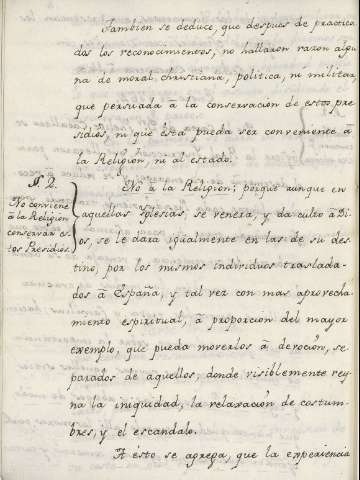 Tambien se deduce, que despues de practica
dos los reconocimientos, no hallaron razon algu
na de moral christiana, politica, ni militar,
que persuada â la conservacion de estos pre
sidios, ni que ésta pueda ser conveniente â
la Religion, ni al estado.
§. 2.
No conviene
â la Religion
conservar es
tos Presidios.
No â la Religion; porque aunque en
aquellas Yglesias, se venera, y da culto â Di
os, se le dará igualmente en las de su des
tino, por los mismos individuos traslada
dos â España, y tal vez con mas aprovecha
miento espiritual, â proporcion del mayor
exemplo, que pueda moverlos â devocion, se
parados de aquellos, donde visiblemente rey
na la iniquidad, la relaxacion de costum
bres, y el escandalo.
A ésto se agrega, que la experiencia